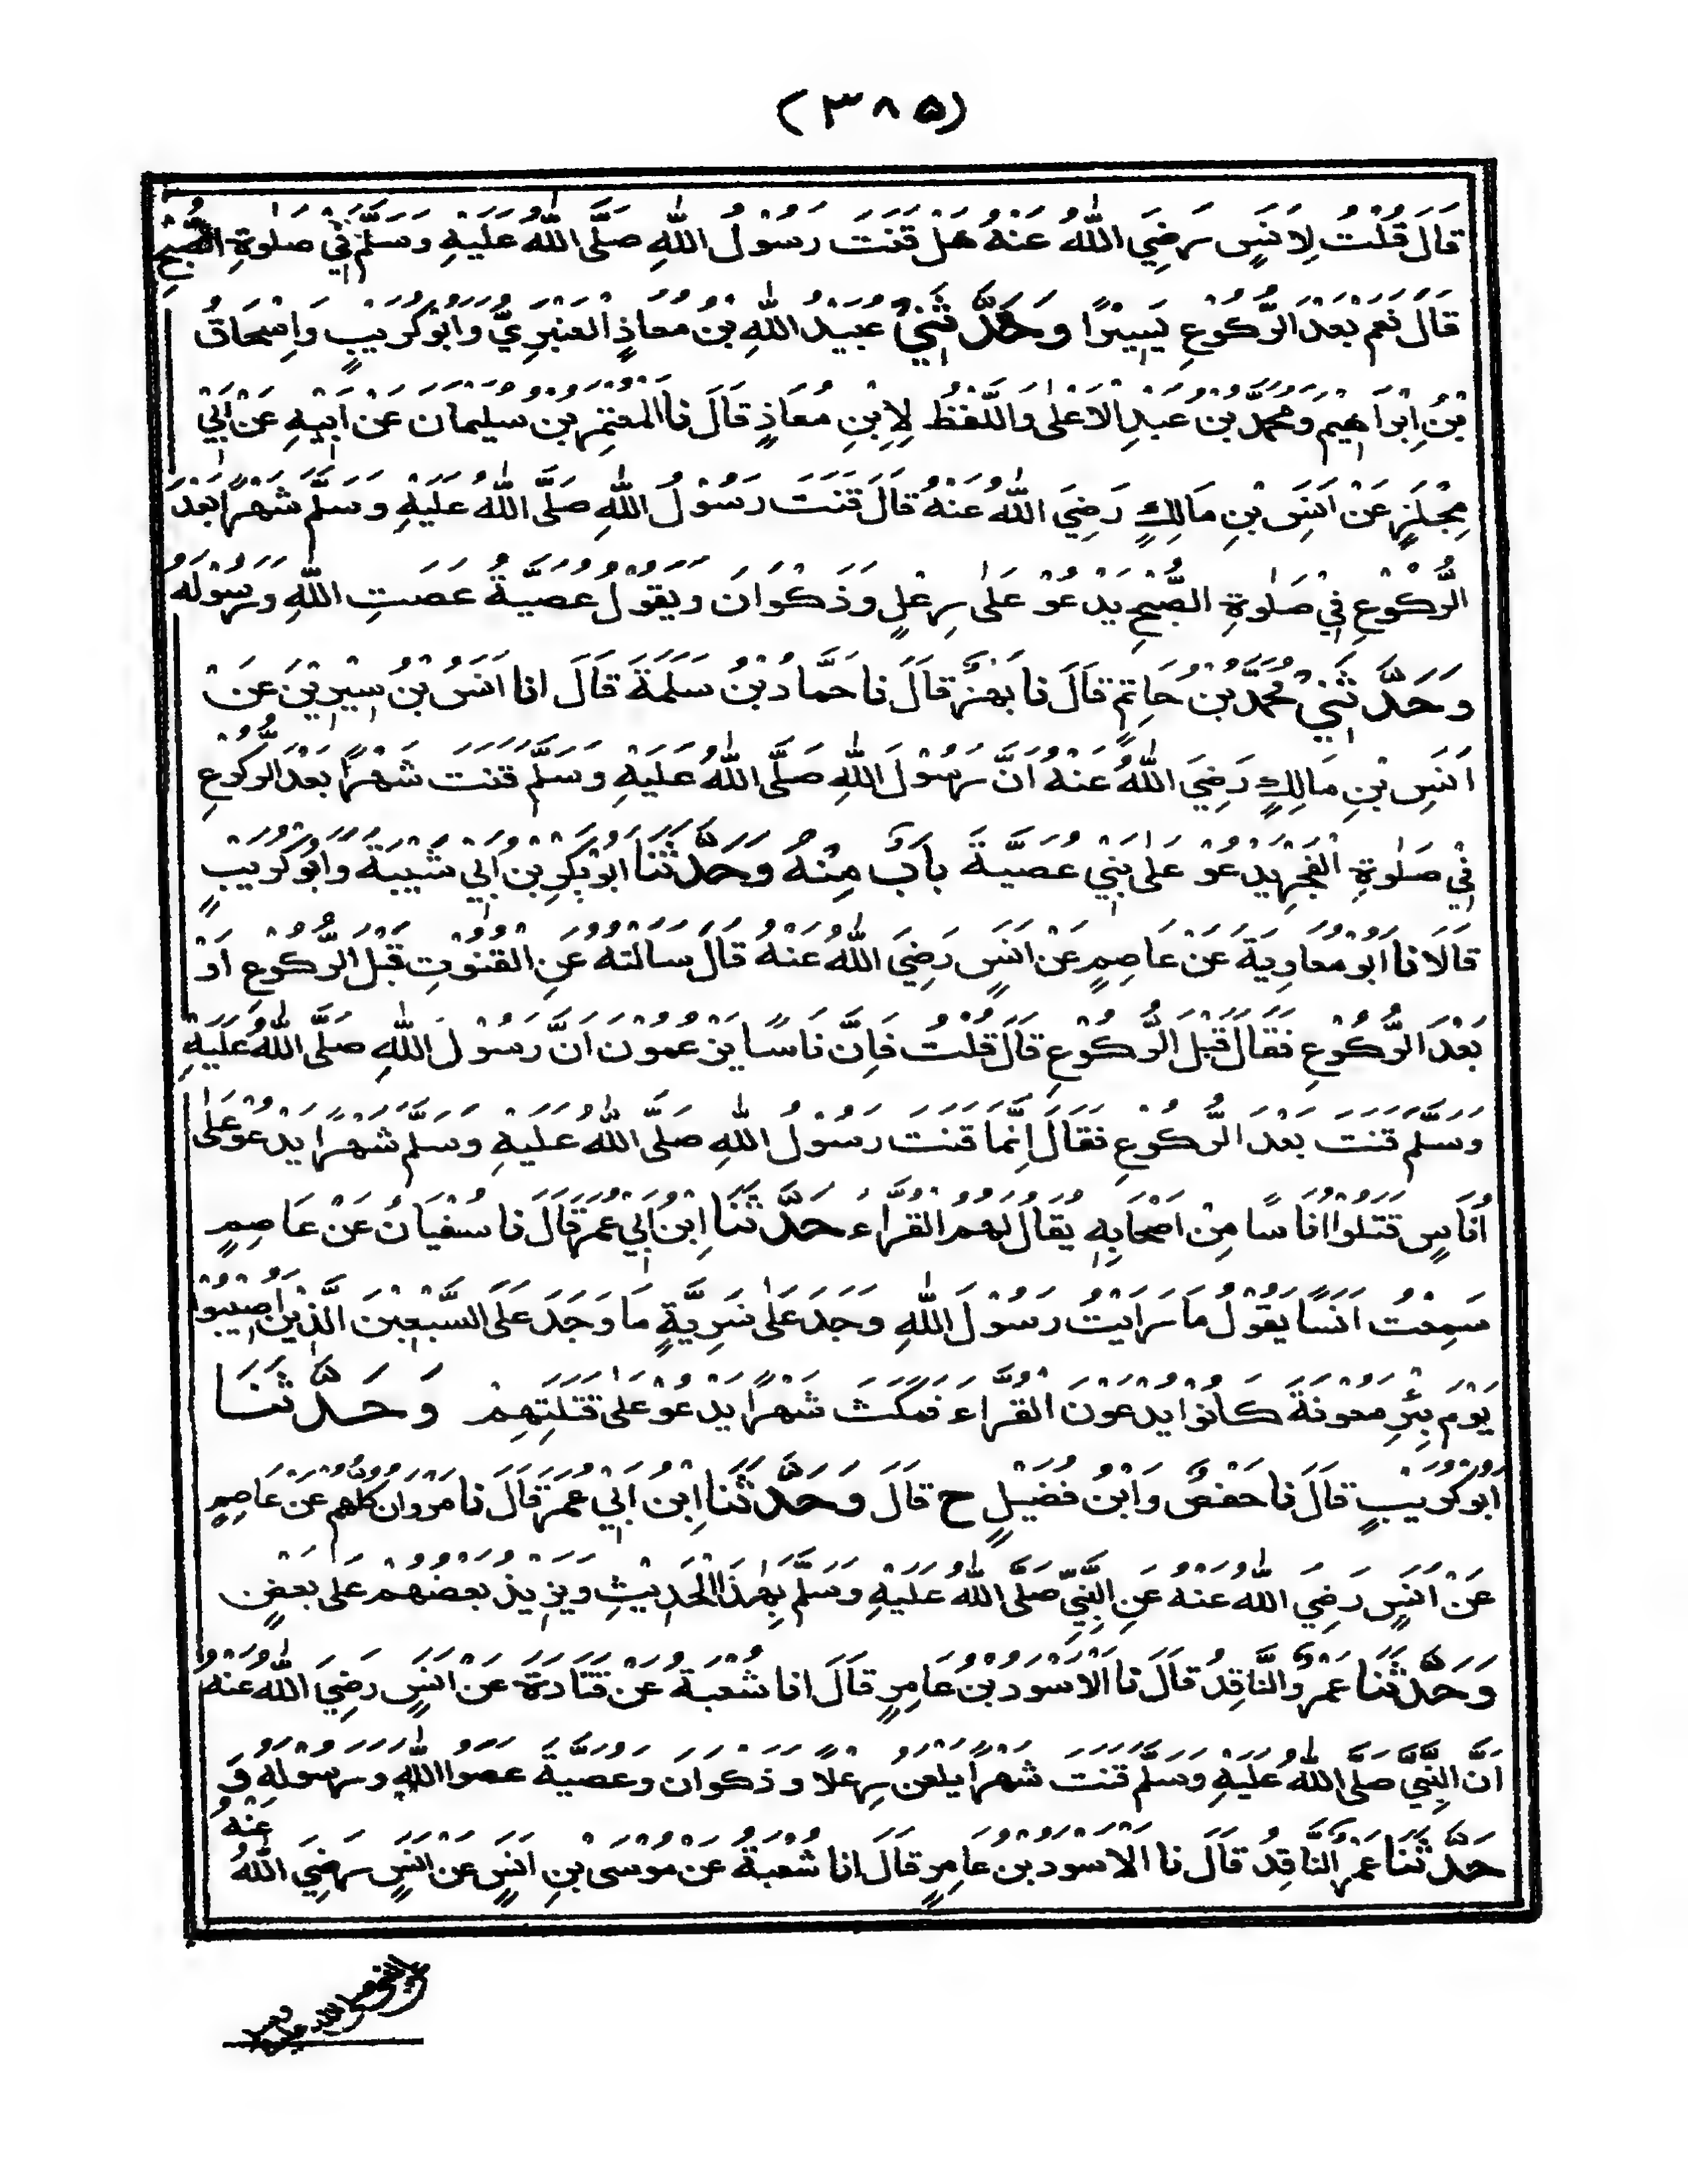 (۳۸۵)
قَالَ قُلْتُ لِاَنَسٍ رَضِيَ اللّٰهُ عَنْهُ هَلْ قَنَتَ رَسُوْلُ اللّٰهِ صَلَّى اللّٰهُ عَلَيْهِ وَسَلَّمَ فِيْ صَلٰوةِ الصُّبْحِ
قَالَ نَعَمْ بَعْدَ الرُّكُوْعِ يَسِيْرًا وَحَدَّثَنِيْ عُبَيْدُ اللّٰهِ بْنُ مُعَاذٍ الْعَنْبَرِيُّ وَاَبُوْ كُرَيْبٍ وَاِسْحَاقُ
بْنُ اِبْرَاهِيْمَ وَمُحَمَّدُ بْنُ عَبْدِ الْاَعْلٰى وَاللَّفْظُ لِاِبْنِ مُعَاذٍ قَالَ نَا الْمُعْتَمِرُ بْنُ سُلَيْمَانَ عَنْ اَبِيْهِ عَنْ اَبِيْ
مِجْلَزٍ عَنْ اَنَسِ بْنِ مَالِكٍ رَضِيَ اللّٰهُ عَنْهُ قَالَ قَنَتَ رَسُوْلُ اللّٰهِ صَلَّى اللّٰهُ عَلَيْهِ وَسَلَّمَ شَهْرًا بَعْدَ
الرُّكُوْعِ فِيْ صَلٰوةِ الصُّبْحِ يَدْعُوْ عَلٰى رِعْلٍ وَذَكْوَانَ وَيَقُوْلُ عُصَيَّةُ عَصَتِ اللّٰهَ وَرَسُوْلَهُ
وَحَدَّثَنِيْ مُحَمَّدُ بْنُ حَاتِمٍ قَالَ نَا بَهْزٌ قَالَ نَا حَمَّادُ بْنُ سَلَمَةَ قَالَ انا اَنَسُ بْنُ سِيْرِيْنَ عَنْ
اَنَسِ بْنِ مَالِكٍ رَضِيَ اللّٰهُ عَنْهُ اَنَّ رَسُوْلَ اللّٰهِ صَلَّى اللّٰهُ عَلَيْهِ وَسَلَّمَ قَنَتَ شَهْرًا بَعْدَ الرُّكُوْعِ
فِيْ صَلٰوةِ الْفَجْرِ يَدْعُوْ عَلٰى بَنِيْ عُصَيَّةَ بَابٌ مِنْهُ وَحَدَّثَنَا اَبُوْ بَكْرِ بْنُ اَبِيْ شَيْبَةَ وَاَبُوْ كُرَيْبٍ
قَالَا نَا اَبُوْ مُعَاوِيَةَ عَنْ عَاصِمٍ عَنْ اَنَسٍ رَضِيَ اللّٰهُ عَنْهُ قَالَ سَاَلْتُهُ عَنِ الْقُنُوْتِ قَبْلَ الرُّكُوْعِ اَوْ
بَعْدَ الرُّكُوْعِ فَقَالَ قَبْلَ الرُّكُوْعِ قَالَ قُلْتُ فَاِنَّ نَاسًا يَزْعُمُوْنَ اَنَّ رَسُوْلَ اللّٰهِ صَلَّى اللّٰهُ عَلَيْهِ
وَسَلَّمَ قَنَتَ بَعْدَ الرُّكُوْعِ فَقَالَ اِنَّمَا قَنَتَ رَسُوْلُ اللّٰهِ صَلَّى اللّٰهُ عَلَيْهِ وَسَلَّمَ شَهْرًا يَدْعُوْ عَلٰى
اُنَاسٍ قَتَلُوْا اُنَاسًا مِنْ اَصْحَابِهٖ يُقَالُ لَهُمُ الْقُرَّاءُ حَدَّثَنَا اِبْنُ اَبِيْ عُمَرَ قَالَ نَا سُفْيَانُ عَنْ عَاصِمٍ
سَمِعْتُ اَنَسًا يَقُوْلُ مَا رَاَيْتُ رَسُوْلَ اللّٰهِ وَجَدَ عَلٰى سَرِيَّةٍ مَا وَجَدَ عَلَى السَّبْعِيْنَ الَّذِيْنَ اُصِيْبُوْا
يَوْمَ بِئْرِ مَعُوْنَةَ كَانُوْا يُدْعَوْنَ الْقُرَّاءَ فَمَكَثَ شَهْرًا يَدْعُوْ عَلٰى قَتَلَتِهِمْ وَحَدَّثَنَا
اَبُوْ كُرَيْبٍ قَالَ نَا حَفْصٌ وَابْنُ فُضَيْلٍ ح قَالَ وَحَدَّثَنَا اِبْنُ اَبِيْ عُمَرَ قَالَ نَا مَرْوَانُ كُلُّهُمْ عَنْ عَاصِمٍ
عَنْ اَنَسٍ رَضِيَ اللّٰهُ عَنْهُ عَنِ النَّبِيِّ صَلَّى اللّٰهُ عَلَيْهِ وَسَلَّمَ بِهٰذَا الْحَدِيْثِ وَيَزِيْدُ بَعْضُهُمْ عَلٰى بَعْضٍ
وَحَدَّثَنَا عَمْرٌو النَّاقِدُ قَالَ نَا الْاَسْوَدُ بْنُ عَامِرٍ قَالَ انا شُعْبَةُ عَنْ قَتَادَةَ عَنْ اَنَسٍ رَضِيَ اللّٰهُ عَنْهُ
اَنَّ النَّبِيَّ صَلَّى اللّٰهُ عَلَيْهِ وَسَلَّمَ قَنَتَ شَهْرًا يَلْعَنُ رِعْلًا وَذَكْوَانَ وَعُصَيَّةَ عَصَوُا اللّٰهَ وَرَسُوْلَهُ وَ
حَدَّثَنَا عَمْرٌو النَّاقِدُ قَالَ نَا الْاَسْوَدُ بْنُ عَامِرٍ قَالَ انا شُعْبَةُ عَنْ مُوْسَى بْنِ اَنَسٍ عَنْ اَنَسٍ رَضِيَ اللّٰهُ عَنْهُ